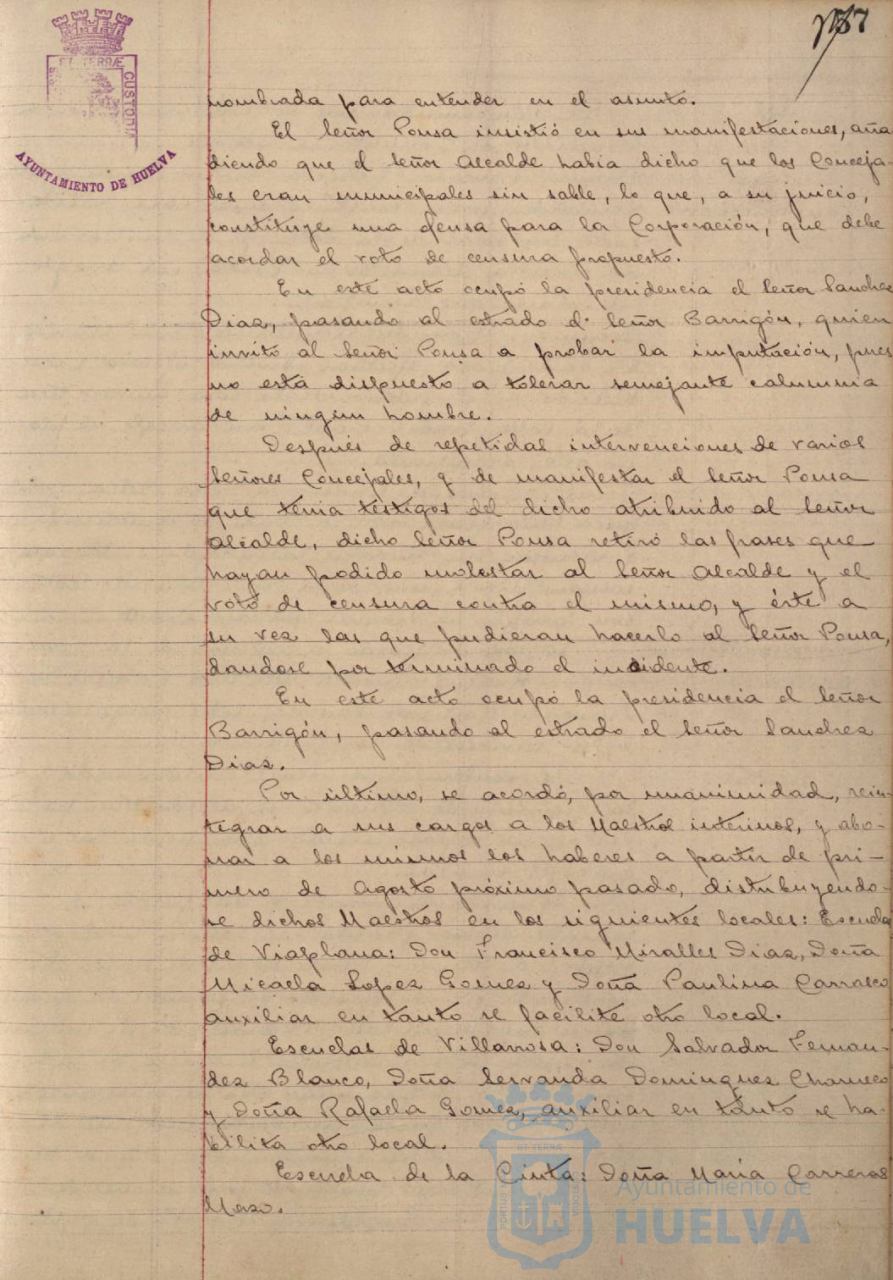 137
ET TERRÆ
CUSTODIA
AYUNTAMIENTO DE HUELVA
nombrada para entender en el asunto.
El Señor Ponsa insistió en sus manifestaciones, aña
diendo que el Señor Alcalde habia dicho que los Conceja-
les eran municipales sin sable, lo que, a su juicio,
constituye una ofensa para la Corporación, que debe
acordar el voto de censura propuesto.
En este acto ocupó la presidencia el Señor Sanchez
Diaz, pasando al estrado el Señor Barrigón, quien
invitó al Señor Ponsa a probar la imputación, pues
no está dispuesto a tolerar semejante calumnia
de ningun hombre.
Después de repetidas intervenciones de varios
Señores Concejales, y de manifestar el Señor Ponsa
que tenia testigos del dicho atribuido al Señor
Alcalde, dicho Señor Ponsa retiró las frases que
hayan podido molestar al Señor Alcalde y el
voto de censura contra el mismo, y éste a
su vez las que pudieran hacerlo al Señor Ponsa,
dandose por terminado el incidente.
En este acto ocupó la presidencia el Señor
Barrigón, pasando al estrado el Señor Sanchez
Diaz.
Por último, se acordó, por unanimidad, rein-
tegrar a sus cargos a los Maestros interinos, y abo-
nar a los mismos los haberes a partir de pri-
mero de Agosto próximo pasado, distribuyendo-
se dichos Maestros en los siguientes locales: Escuela
de Viaplana: Don Francisco Miralles Diaz, Doña
Micaela Lopez Gomez y Doña Paulina Carrasco
auxiliar en tanto se facilite otro local.
Escuelas de Villarrosa: Don Salvador Fernan-
dez Blanco, Doña Servanda Dominguez Charneco
y Doña Rafaela Gomez, auxiliar en tanto se ha-
bilita otro local.
Escuela de la Cinta: Doña Maria Carreras
Mazo.
Ayuntamiento de
HUELVA